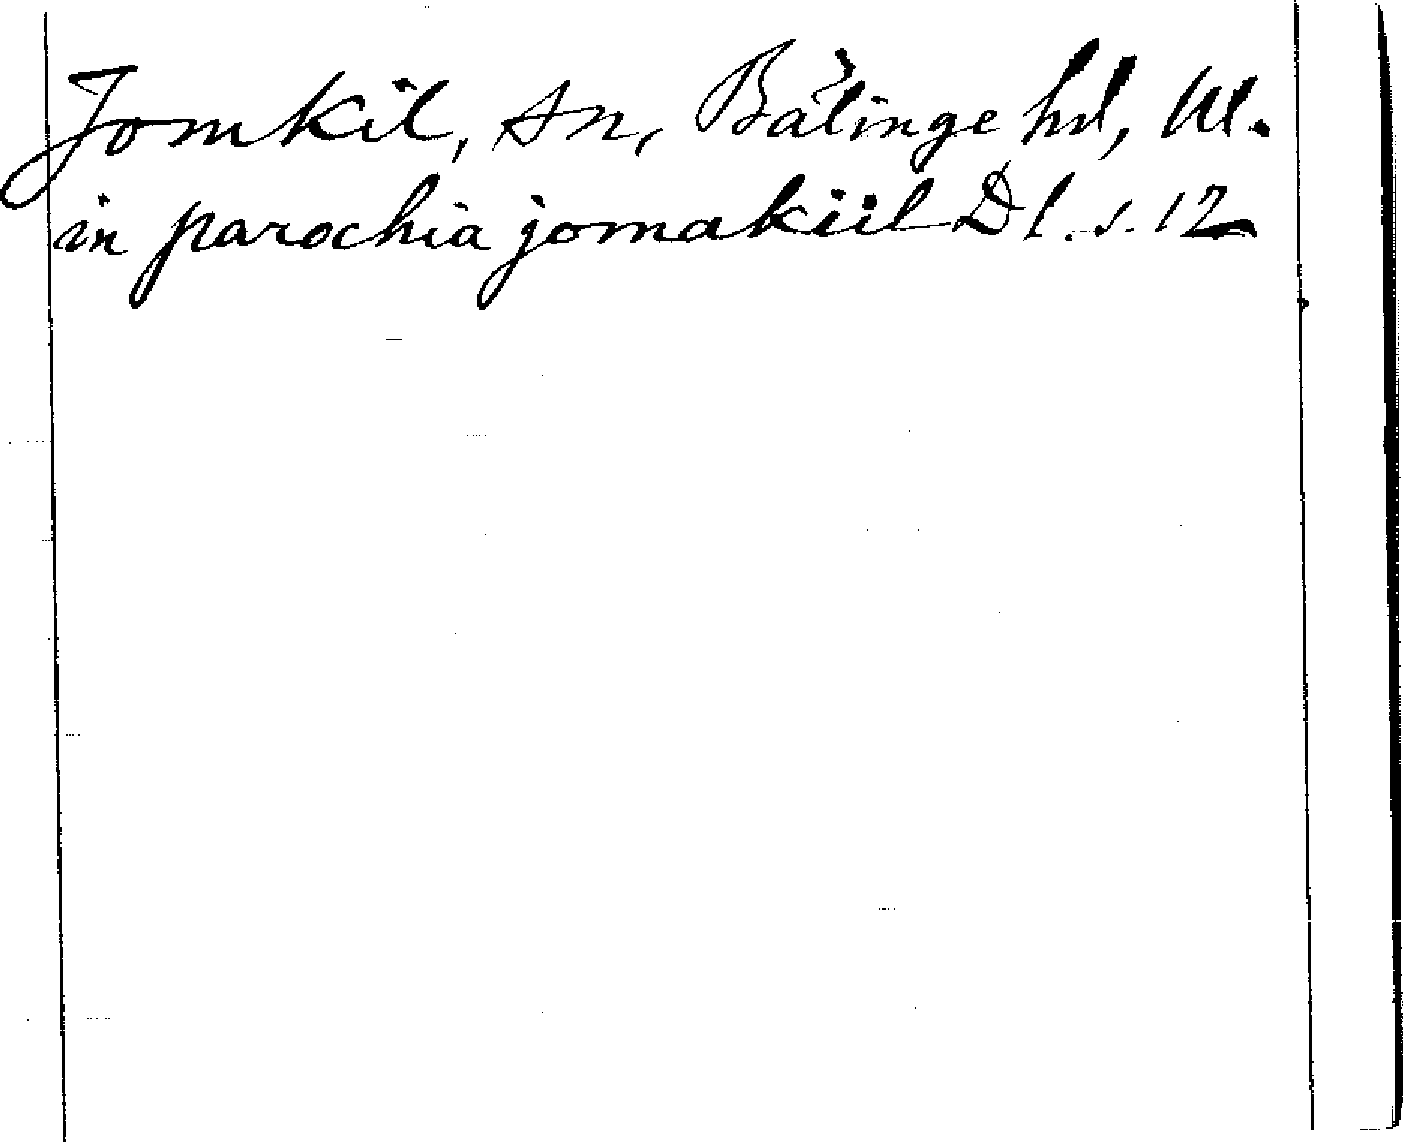 Jomkil, sn, Bälinge hd, Ul.
in parochia jomakiil D1. s. 12